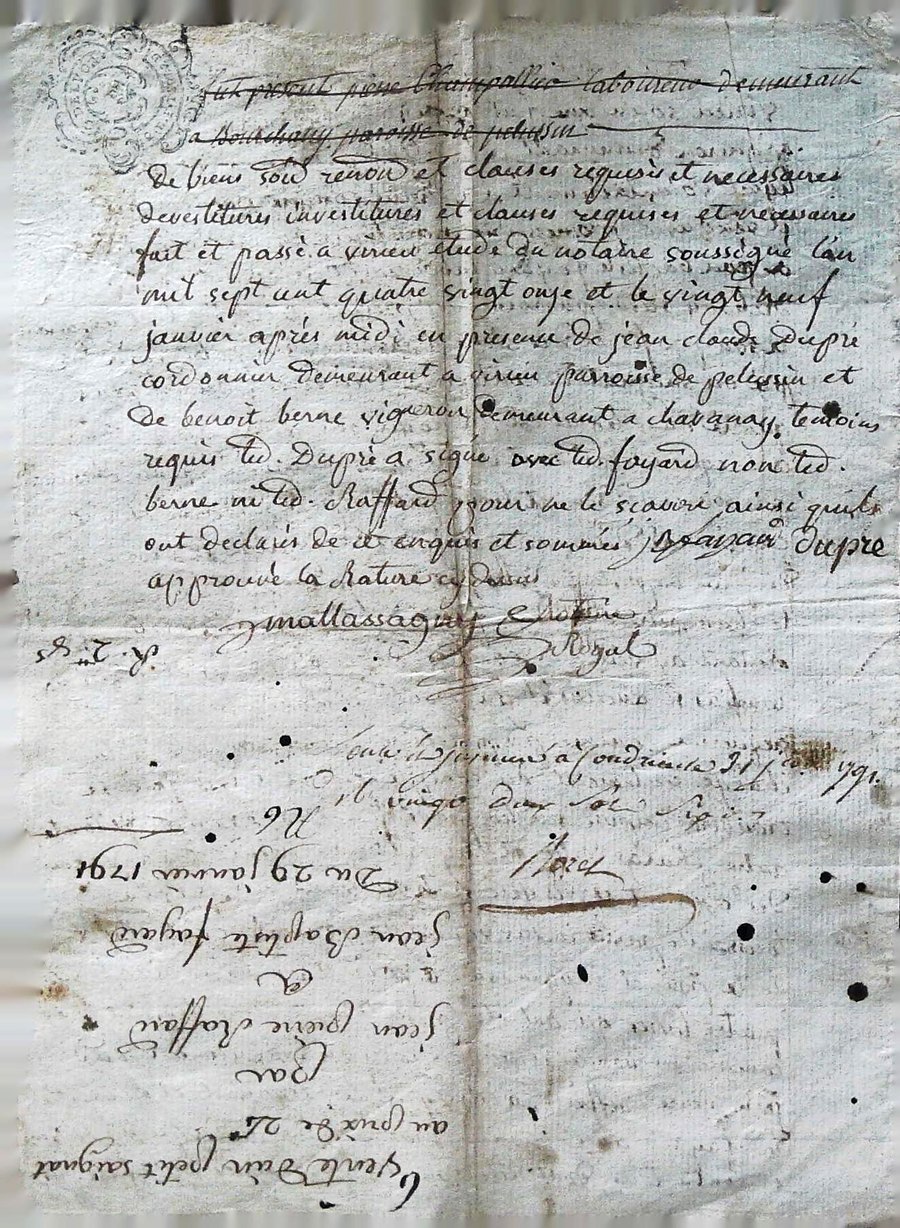 fut présent pière Champallier laboureur demeurant
a Bourchany paroisse de pelussin
de biens soûd renond et clauses requises et necessaires
devestitures investitures et clauses requises et necessaires
fait et passé a virieu étude du notaire soussigné l'an
mil sept cent quatre vingt onze et le vingt neuf
janvier après midi en presence de jean claude Dupré
cordonnier demeurant a virieu parroisse de pelussin et
de benoit berne vigneron demeurant a chavanay temoins
requis led. Dupré a signé avec led. fayard non led.
berne ni led. Raffard pour ne le sçavoir ainsi quils
ont déclarés de ce enquis et sommés J B fayard dupre
approuvé la Rature cy dessus
mallassagny Notaire
Royal
a Condrieu le 31 1791.
vingt deux sols six
Morel
Vente d'un petit saignat
au prix de
Par
jean pierre Raffard
A
jean Baptiste fayard
Du 29 janvier 1791